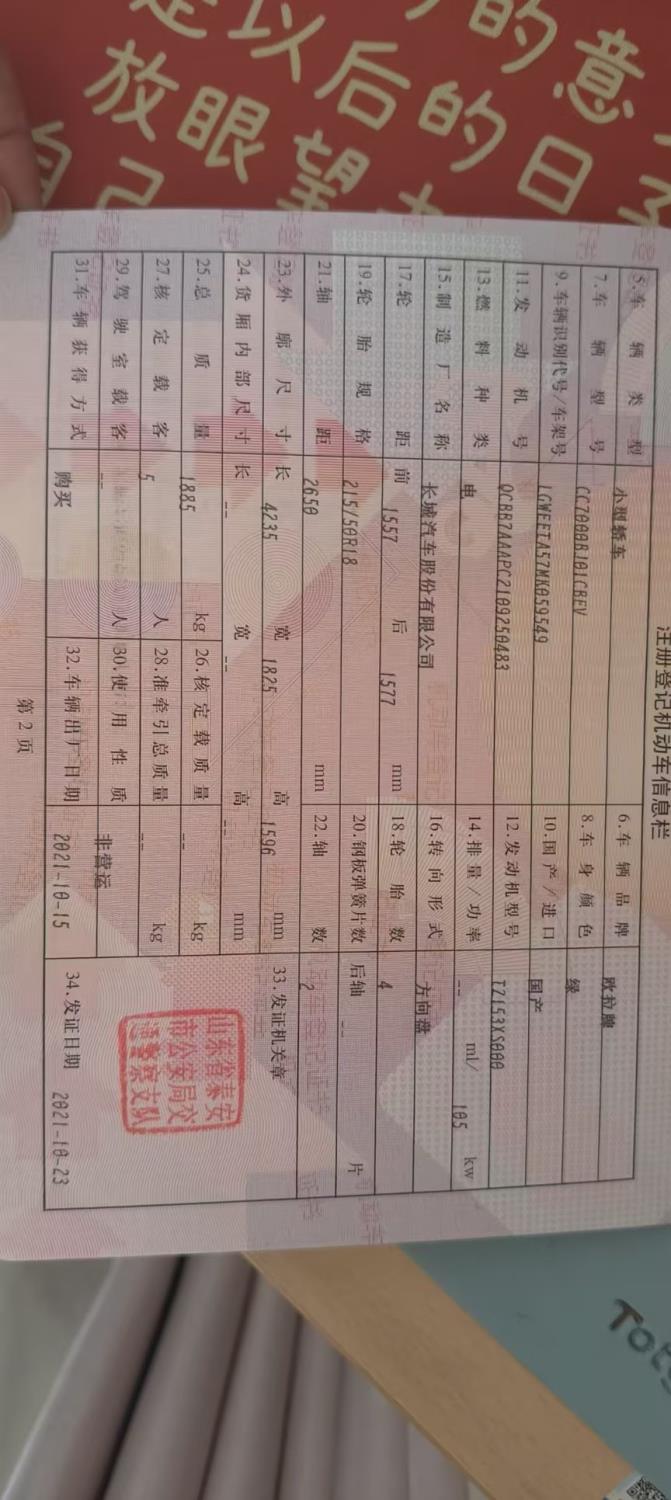 的意
是以后的日子
放眼望
自己
注册登记机动车信息栏
5.车辆类型 小型轿车 6.车辆品牌 欧拉牌
7.车辆型号 CC7000BJ01CBEV 8.车身颜色 绿
9.车辆识别代号/车架号 LGWEETA57MK059549 10.国产/进口 国产
11.发动机号 QCBB7AAAPC2109250483 12.发动机型号 TZ153XS000
13.燃料种类 电 14.排量/功率 -- ml/ 105 kw
15.制造厂名称 长城汽车股份有限公司 16.转向形式 方向盘
17.轮距 前 1557 后 1577 mm 18.轮胎数 4
19.轮胎规格 215/50R18 20.钢板弹簧片数 后轴 -- 片
21.轴距 2650 mm 22.轴数 2
23.外廓尺寸 长 4235 宽 1825 高 1596 mm 33.发证机关章
24.货厢内部尺寸 长 -- 宽 -- 高 -- mm
25.总质量 1885 kg 26.核定载质量 -- kg
27.核定载客 5 人 28.准牵引总质量 -- kg
29.驾驶室载客 -- 人 30.使用性质 非营运
31.车辆获得方式 购买 32.车辆出厂日期 2021-10-15 34.发证日期 2021-10-23
山东省泰安
市公安局交
通警察支队
第2页